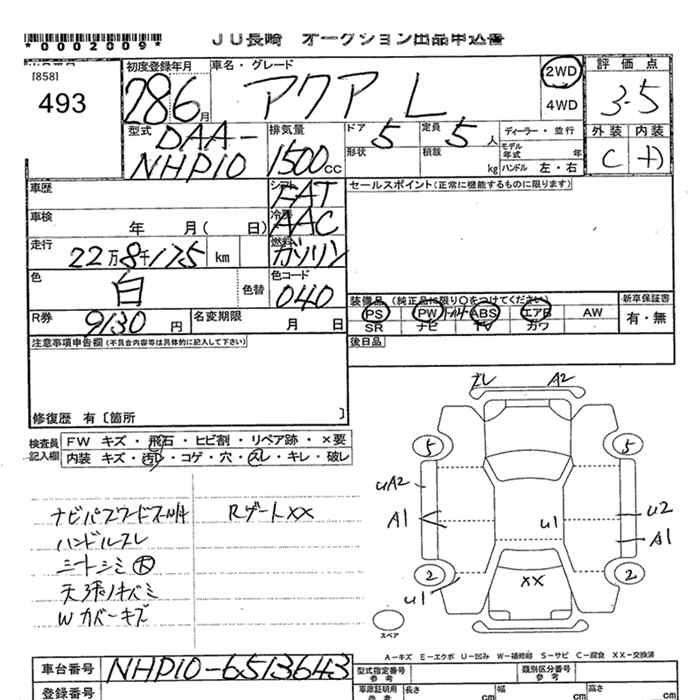 *0002009*
JU長崎 オークション出品申込書
[858]
493
初度登録年月
28年6月
車名・グレード
アクア L
2WD
4WD
評価点
3.5
外装 内装
C +)
型式
DAA-
NHP10
排気量
1500cc
ドア 5
形状
定員 5人
積載 kg
ディーラー・並行
モデル年式 年
ハンドル 左・右
車歴
シフト
FAT
セールスポイント(正常に機能するものに限ります)
車検 年 月( 日)
冷房
AAC
走行 22万8千175 km
燃料
ガソリン
色 白
色替
色コード
040
装備品 (純正品に限り○をつけてください)
新車保証書
PS PW ABS エアB AW
SR ナビ TV カワ
有・無
R券 9130円
名変期限 月 日
後日品
注意事項申告欄(不具合内容等は具体的に記入して下さい)
修復歴 有〔箇所 〕
検査員記入欄
FW キズ・飛石・ヒビ割・リペア跡・×要
内装 キズ・汚レ・コゲ・穴・スレ・キレ・破レ
ズレ A2
5 5
UA2
A1
U1
U2
A1
2 2
U1
XX
スペア
ナビパスワード不明
Rゲートxx
ハンドルスレ
シートシミ大
天張ノキバミ
Wカバーキズ
A-キズ E-エクボ U-凹み W-補修跡 S-サビ C-腐食 XX-交換済
車台番号 NHP10-6513643
型式指定番号
参考
類別区分番号
参考
登録番号
車庫証明用
参考
長さ cm
幅 cm
高さ cm